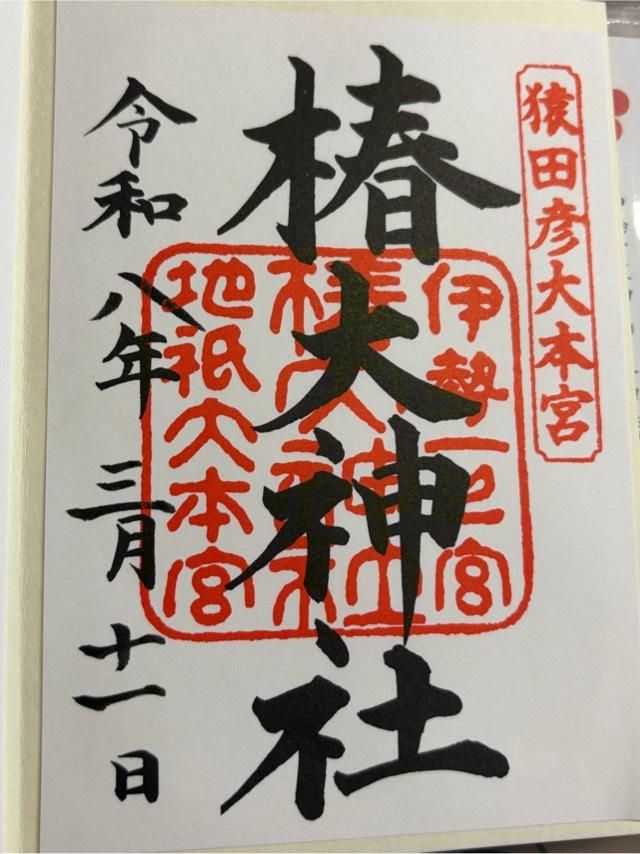 猿田彦大本宮
伊勢一之宮
椿大神社
地祇大本宮
椿大神社
令和八年三月十一日